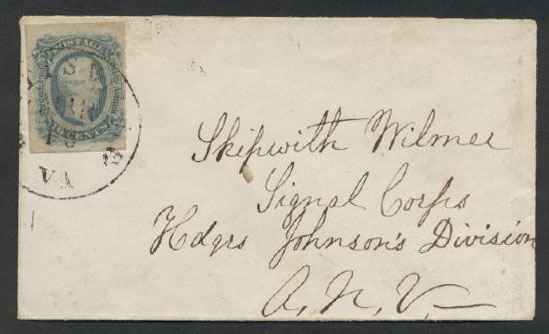 POSTAGE
CENTS
VA
Skipwith Wilmer
Signal Corps
Hdqrs Johnson's Division
A. N. V.